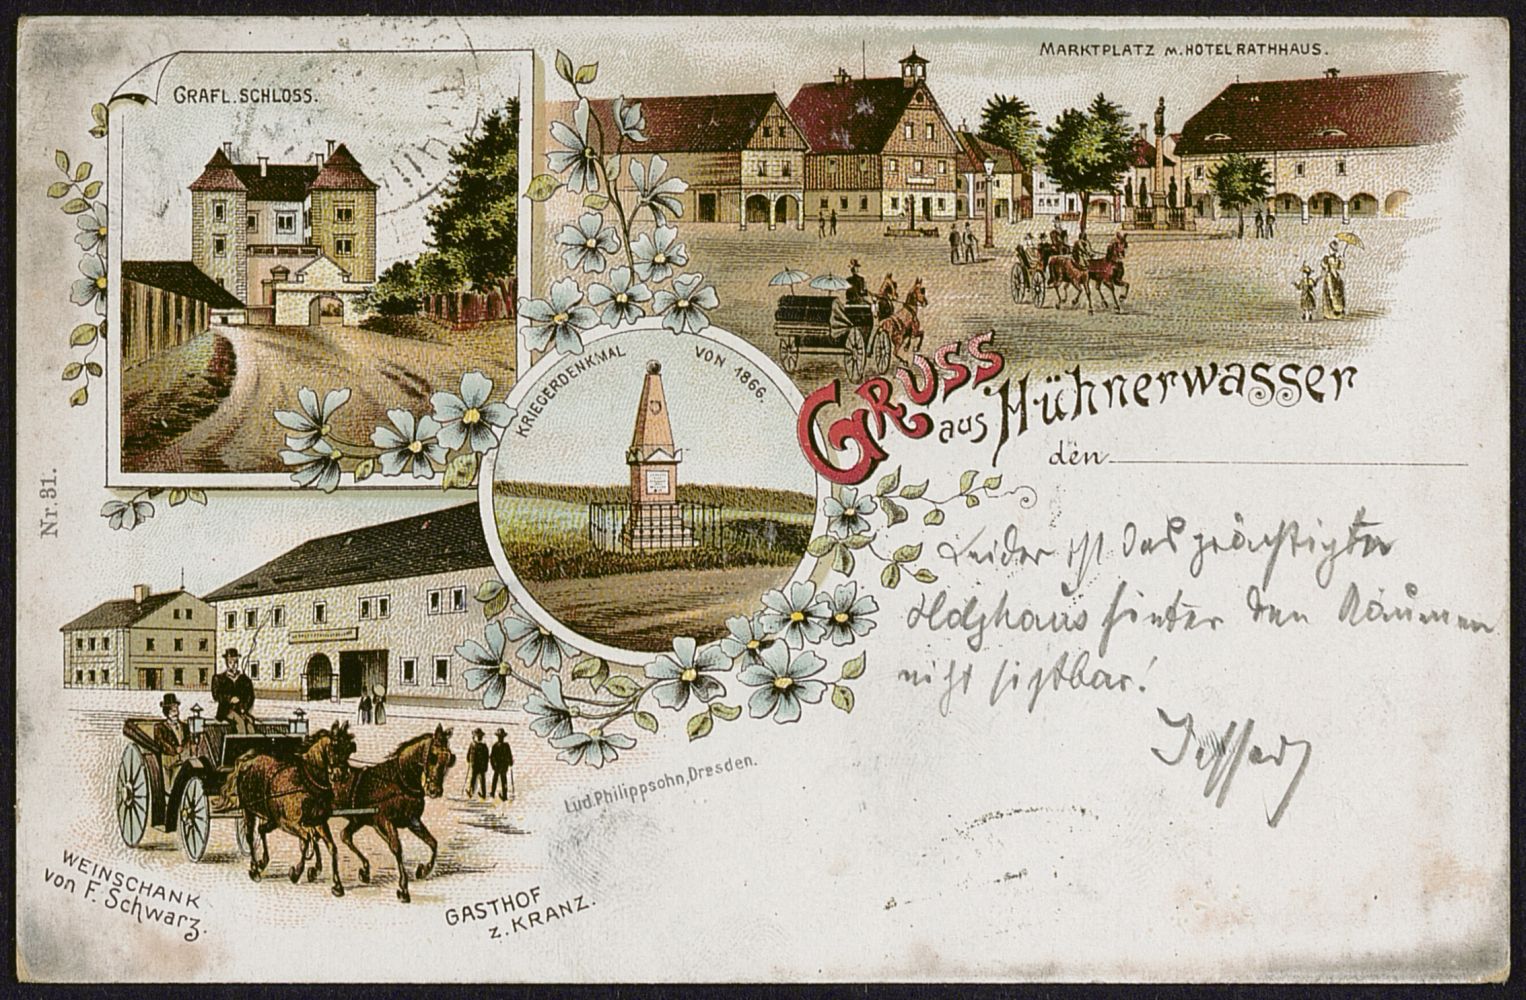 GRÄFL. SCHLOSS.
MARKTPLATZ M. HOTEL RATHHAUS.
KRIEGERDENKMAL VON 1866.
GRUSS
aus Hühnerwasser
den
Nr. 31.
Leider ist das prächtigste
Holzhaus hinter den Bäumen
nicht sichtbar!
Lud. Philippsohn, Dresden.
WEINSCHANK
von F. Schwarz.
GASTHOF
z. KRANZ.